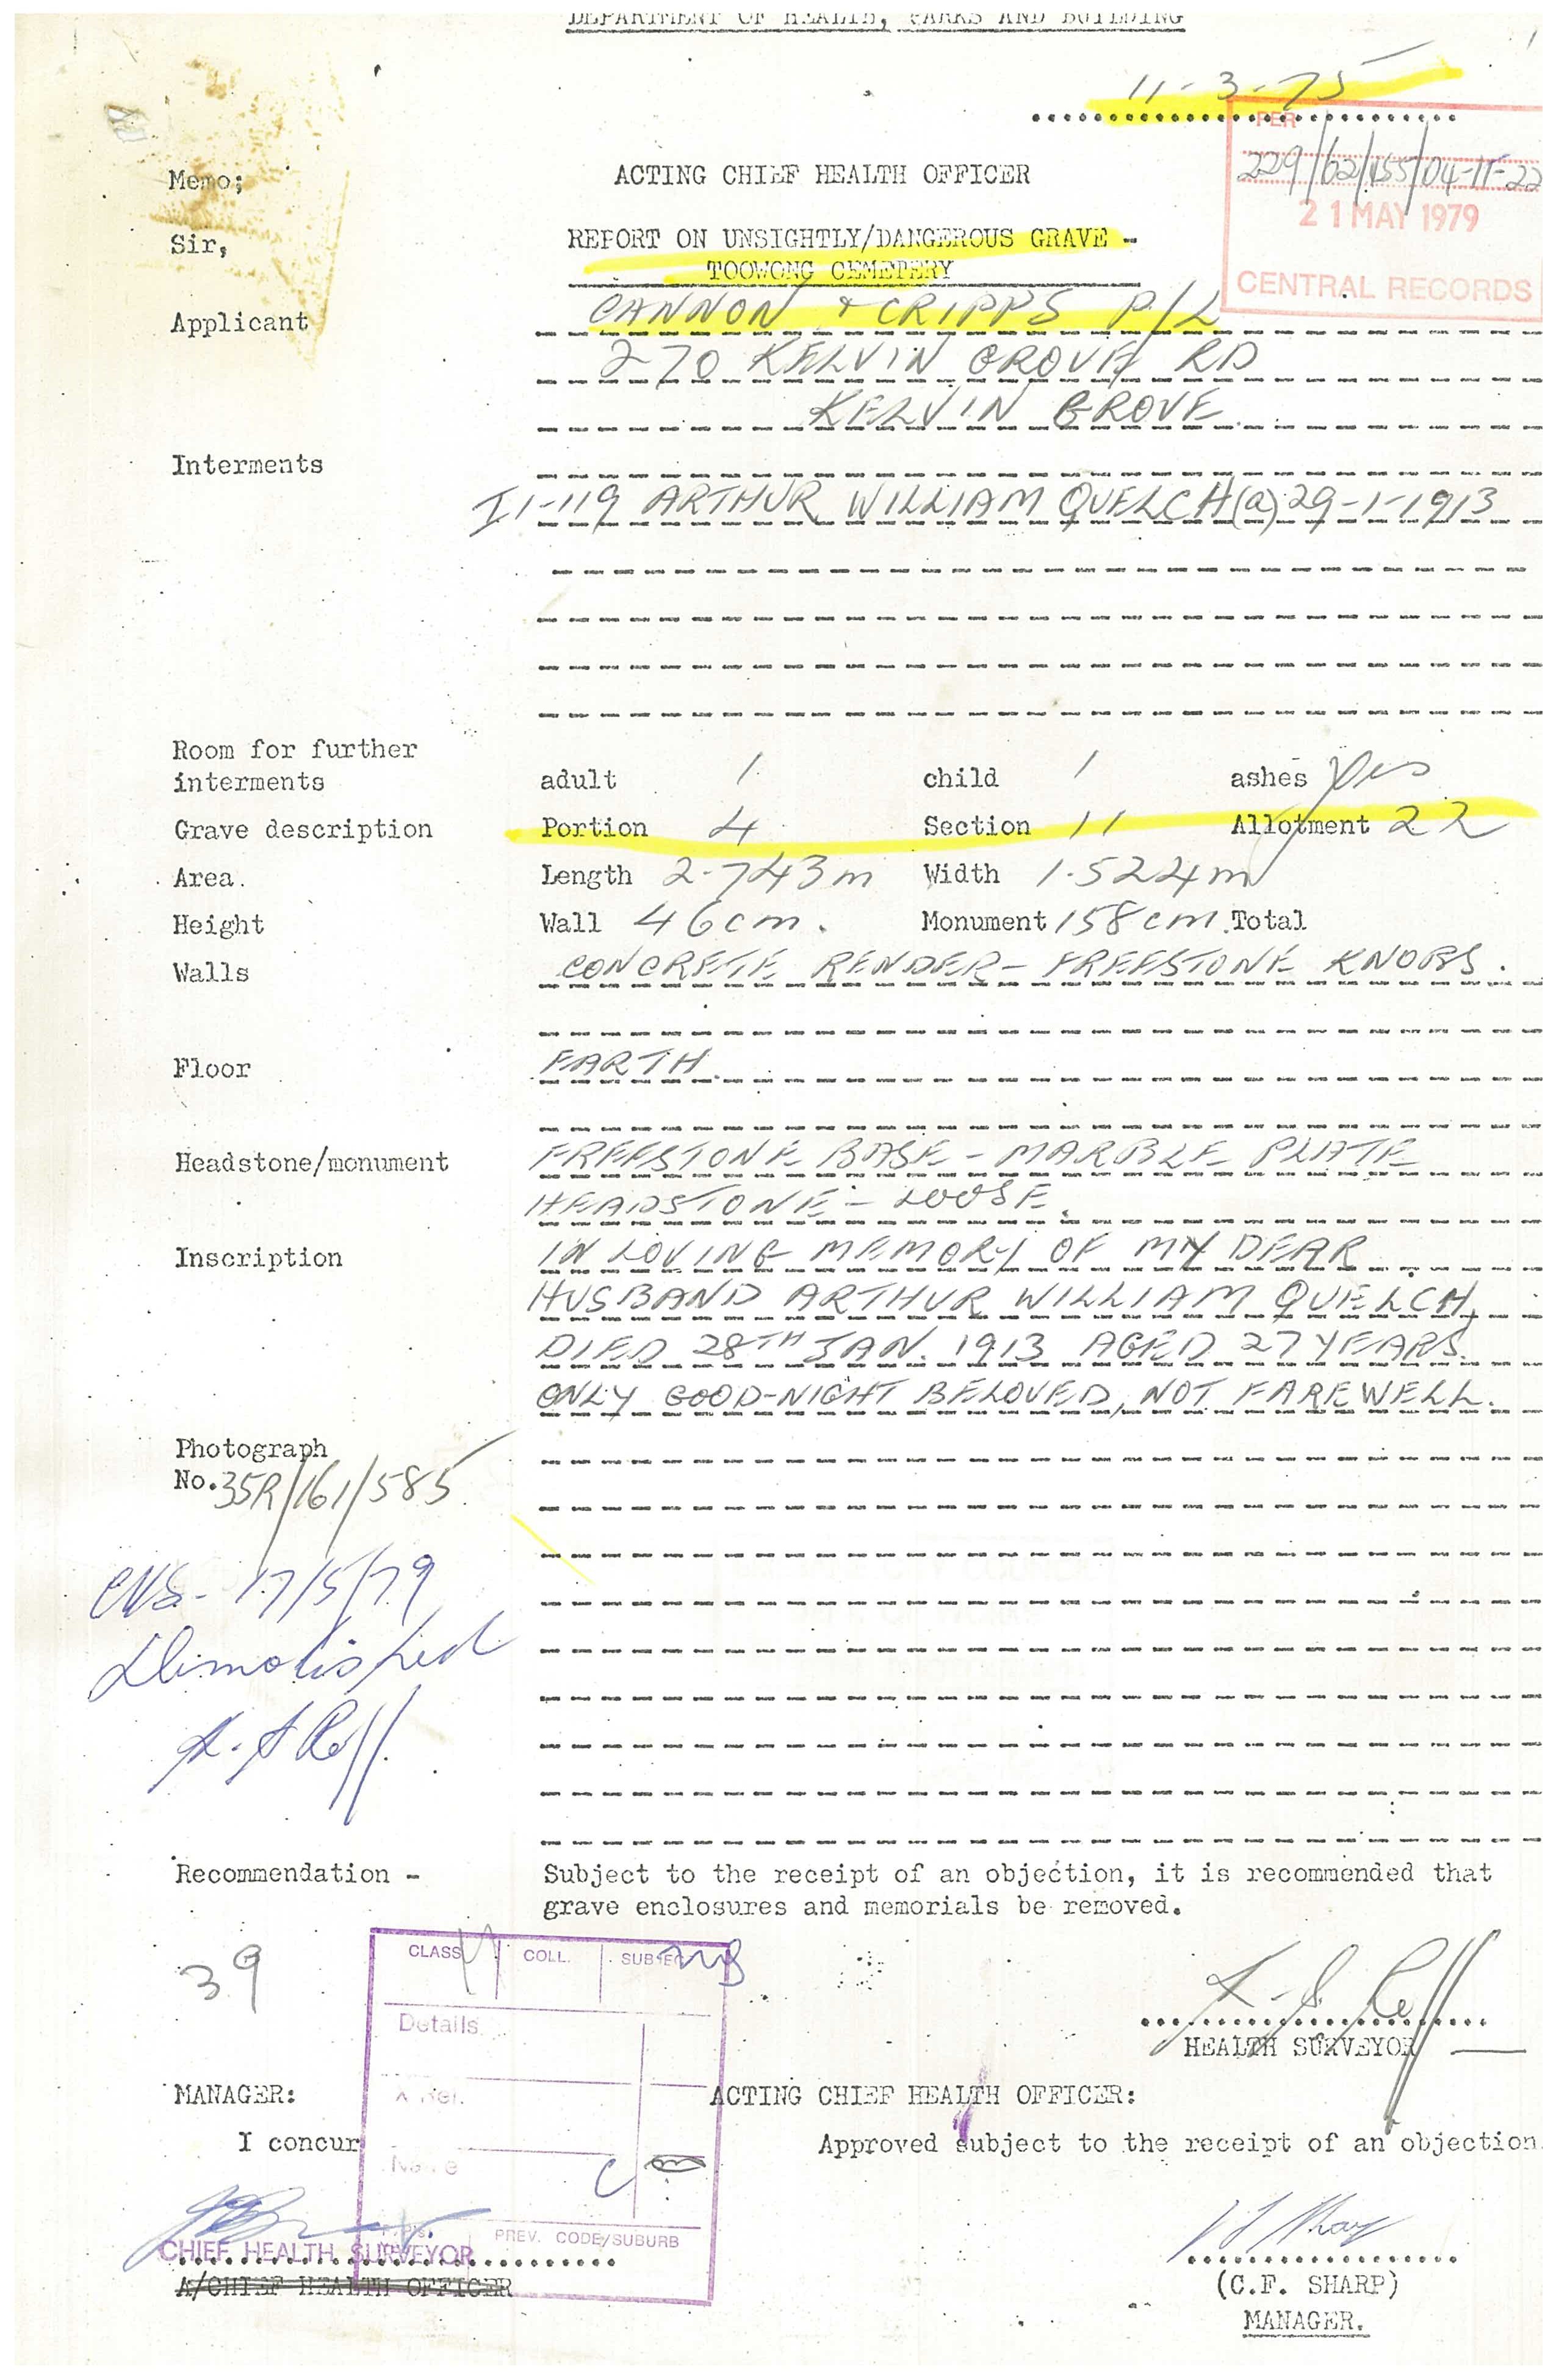 DEPARTMENT OF HEALTH, PARKS AND BUILDING
11-3-75
PER
229/62/455/04-11-22
21 MAY 1979
CENTRAL RECORDS
Memo; ACTING CHIEF HEALTH OFFICER
Sir, REPORT ON UNSIGHTLY/DANGEROUS GRAVE -
TOOWONG CEMETERY
Applicant CANNON & CRIPPS P/L
270 KELVIN GROVE RD
KELVIN GROVE
Interments
I1-119 ARTHUR WILLIAM QUELCH (a) 29-1-1913
Room for further
interments adult 1 child 1 ashes Yes
Grave description Portion 4 Section 11 Allotment 22
Area. Length 2.743m Width 1.524m
Height Wall 46cm. Monument 158cm. Total
Walls CONCRETE RENDER - FREESTONE KNOBS.
Floor EARTH.
Headstone/monument FREESTONE BASE - MARBLE PLATE
HEADSTONE - LOOSE.
Inscription IN LOVING MEMORY OF MY DEAR
HUSBAND ARTHUR WILLIAM QUELCH,
DIED 28TH JAN. 1913 AGED 27 YEARS.
ONLY GOOD-NIGHT BELOVED, NOT FAREWELL.
Photograph
No. 35R/161/585
17/5/79
Dimolished
Recommendation - Subject to the receipt of an objection, it is recommended that
grave enclosures and memorials be removed.
39
CLASS COLL. SUBJECT
Details
X Ref.
Name
HEALTH SURVEYOR
MANAGER: ACTING CHIEF HEALTH OFFICER:
I concur Approved subject to the receipt of an objection.
PREV. CODE/SUBURB
CHIEF HEALTH SURVEYOR
A/CHIEF HEALTH OFFICER
(C.F. SHARP)
MANAGER.